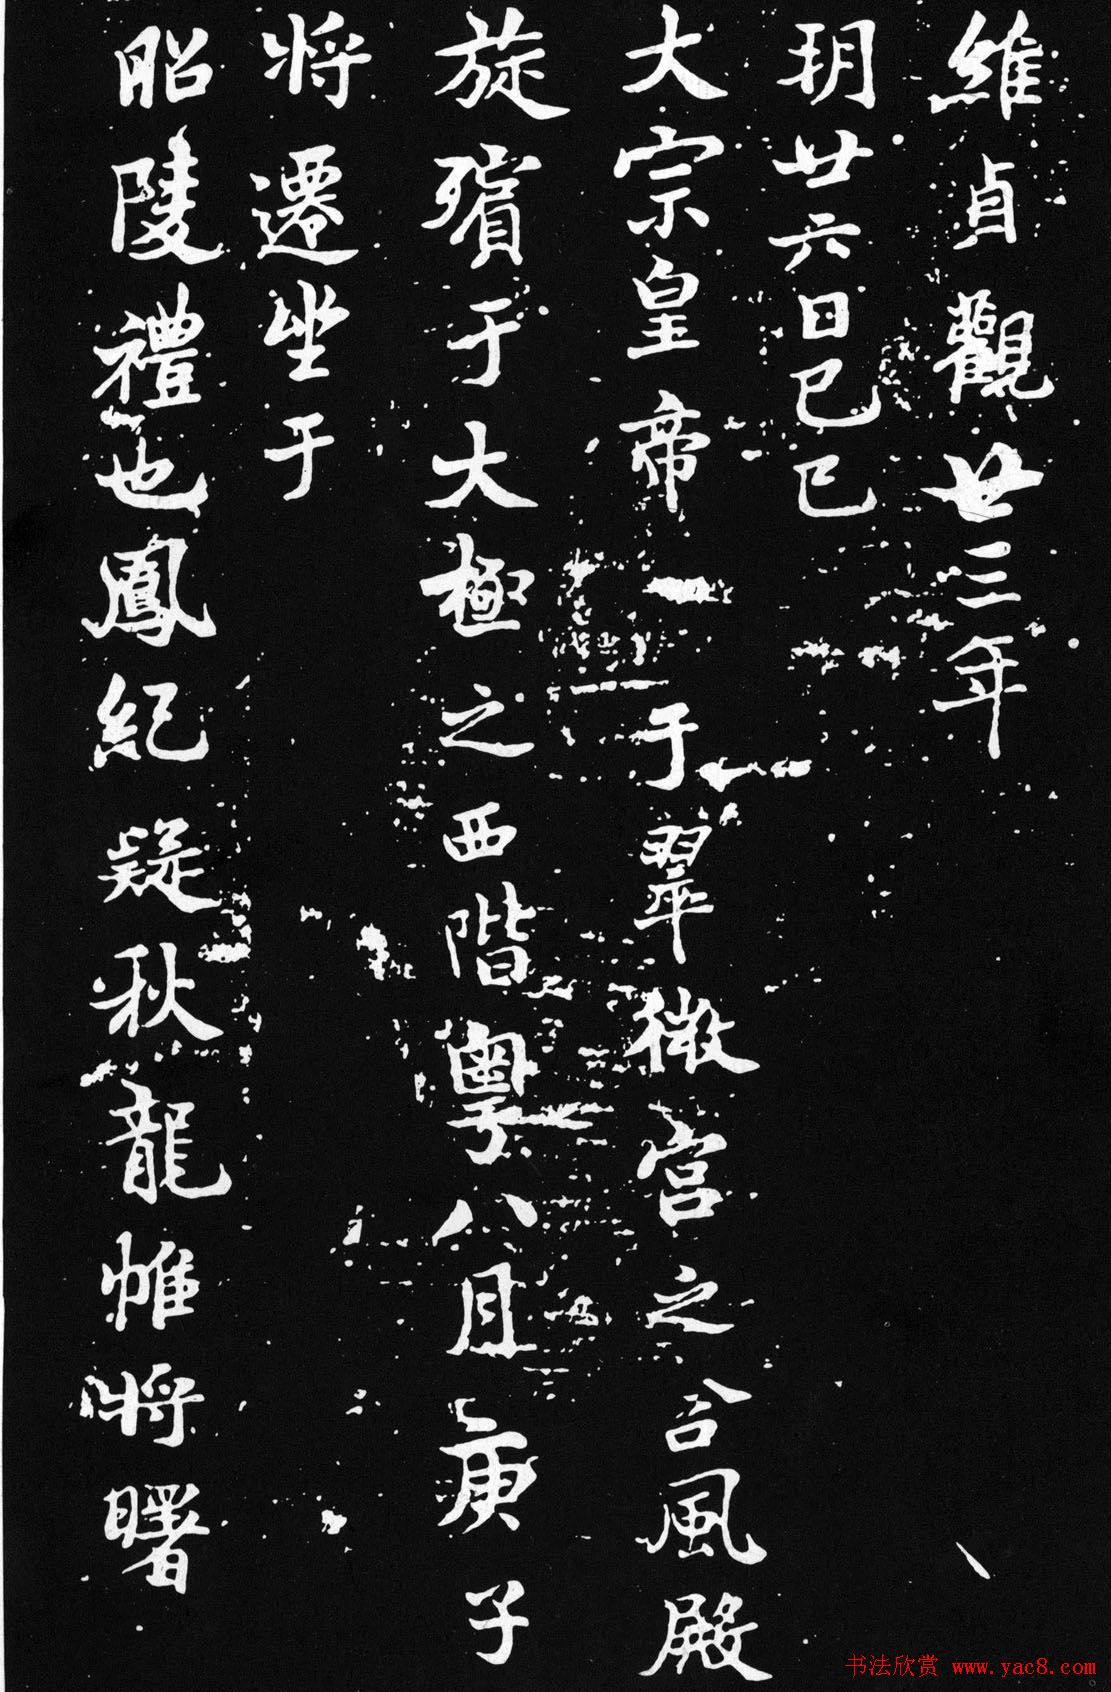 維貞觀廿三年
玥廿六日己巳
大宗皇帝一于翠微宮之含風殿
旋殯于大極之西階粵八月庚子
将遷坐于
昭陵禮也鳳紀疑秋龍帷将曙
书法欣赏 www.yac8.com